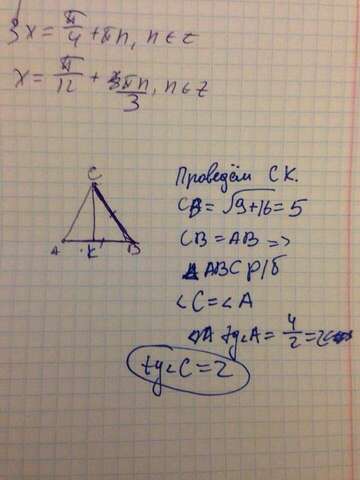 3x = π/4 + πn, n ∈ z
x = π/12 + πn/3, n ∈ z
Проведём CK.
CB = √9+16 = 5
CB = AB =>
ABC р/б
∠C = ∠A
tg∠A = 4/2 = 2
tg∠C = 2
C
A
K
B